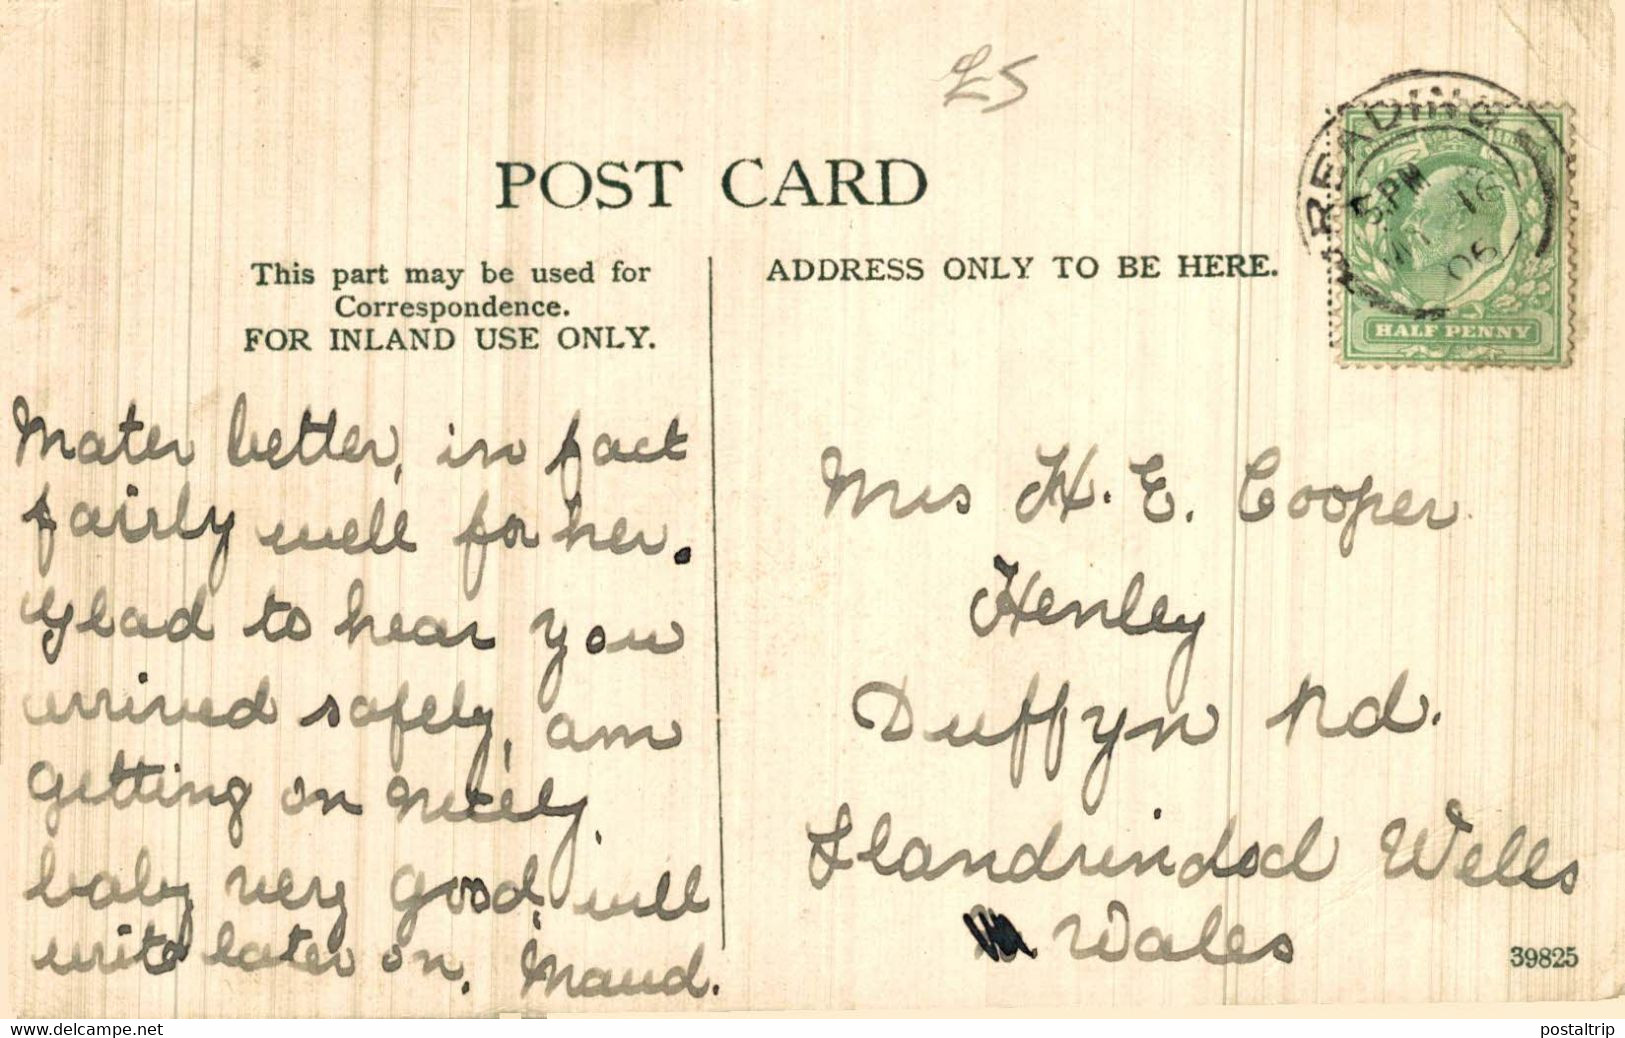 £5
POST CARD
This part may be used for
Correspondence.
FOR INLAND USE ONLY.
ADDRESS ONLY TO BE HERE.
READING
5.PM
16
06
HALF PENNY
Mater better, in fact
fairly well for her.
Glad to hear you
arrived safely, am
getting on nicely,
baby very good, will
write later on. Maud.
Mrs H. E. Cooper
Henley
Duffyn Rd.
Llandrindod Wells
Wales
39825
www.delcampe.net
postaltrip